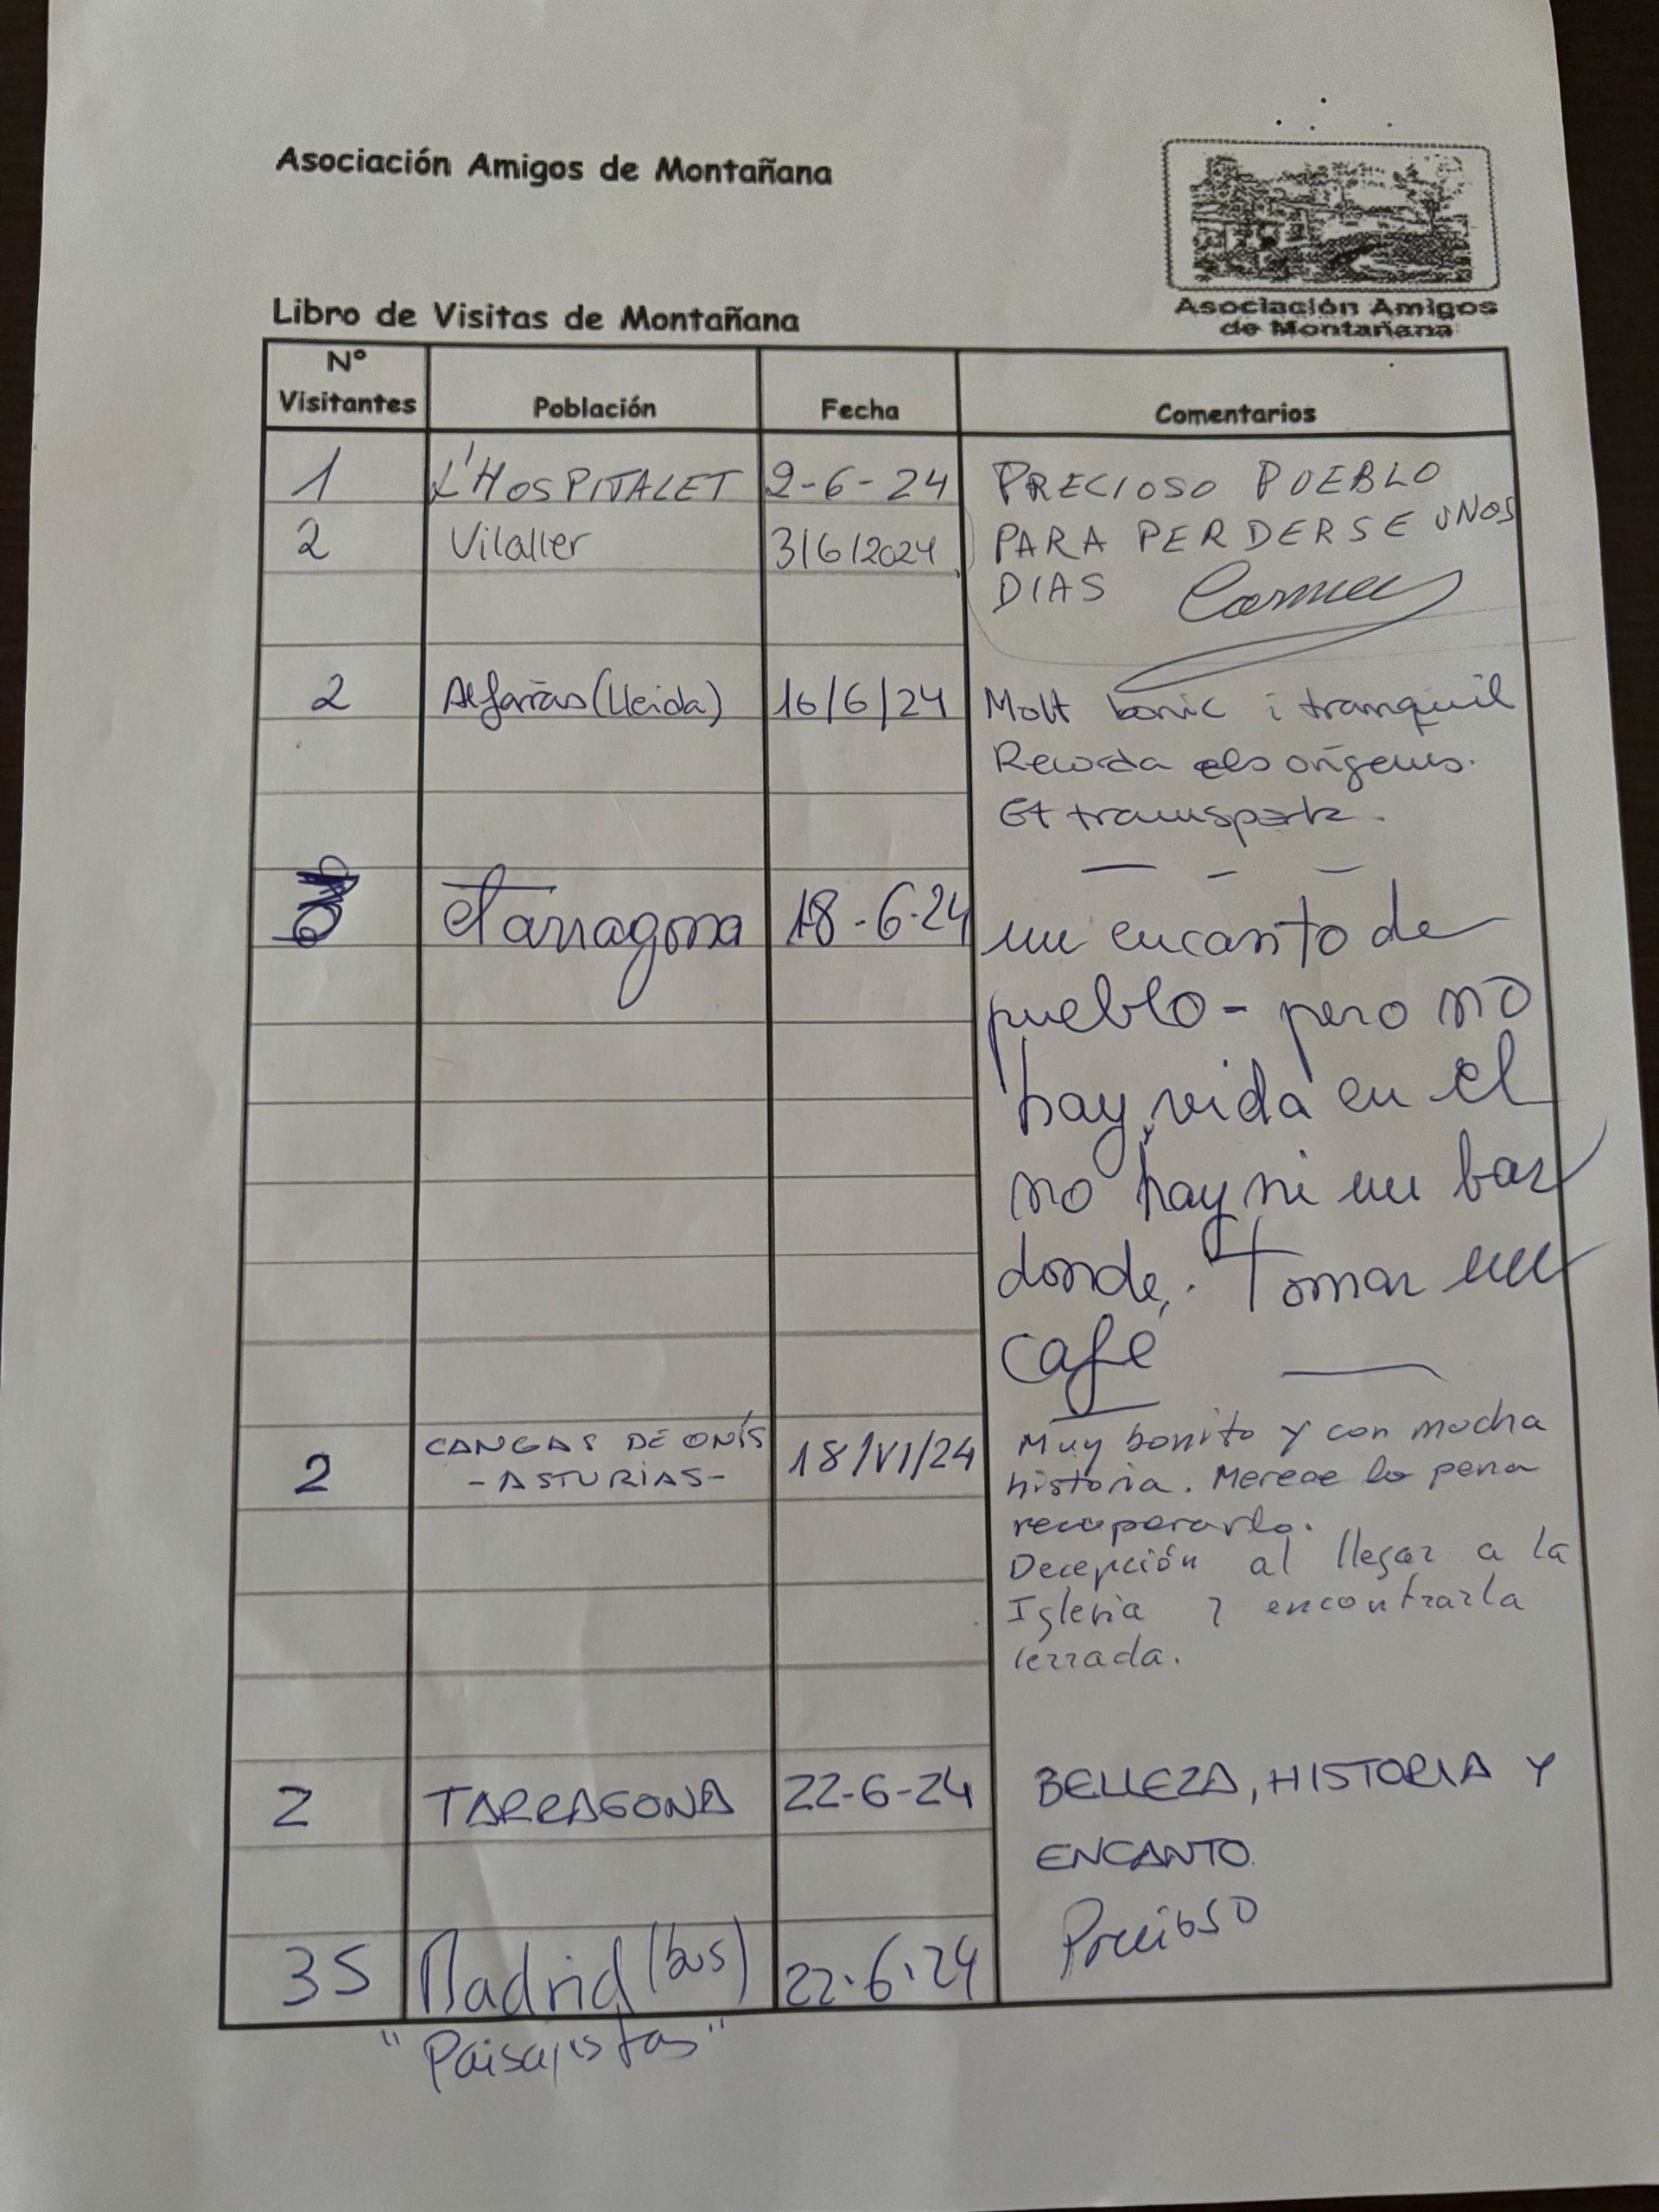 Asociación Amigos de Montañana
Asociación Amigos
de Montañana
Libro de Visitas de Montañana
Nº
Visitantes Población Fecha Comentarios
1 L'HOSPITALET 2-6-24 PRECIOSO PUEBLO
2 Vilaller 3/6/2024 PARA PERDERSE UNOS
DIAS Carmen
2 Alfarràs (Lleida) 16/6/24 Molt bonic i tranquil
Recorda els orígens.
Et transporta.
Tarragona 18-6-24 un encanto de
pueblo - pero no
hay vida en el
no hay ni un bar
donde. Tomar un
café
2 CANGAS DE ONÍS 18/VI/24 Muy bonito y con mucha
-ASTURIAS- historia. Merece la pena
recuperarlo.
Decepción al llegar a la
Iglesia y encontrarla
cerrada.
2 TARRAGONA 22-6-24 BELLEZA, HISTORIA Y
ENCANTO.
35 Madrid (bus) 22.6.24 Precioso
"Paisajistas"